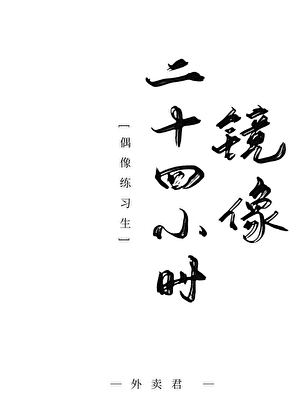 镜像
二十四小时
[偶像练习生]
— 外卖君 —